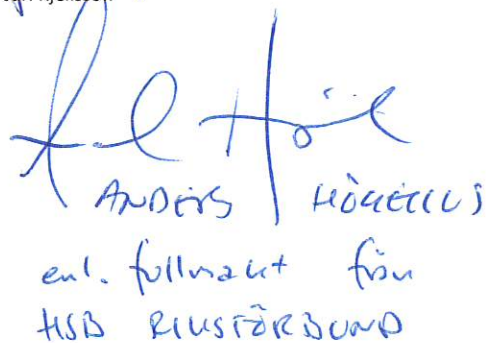 ANDERS HÖGELIUS
enl. fullmakt från
HSB RIKSFÖRBUND